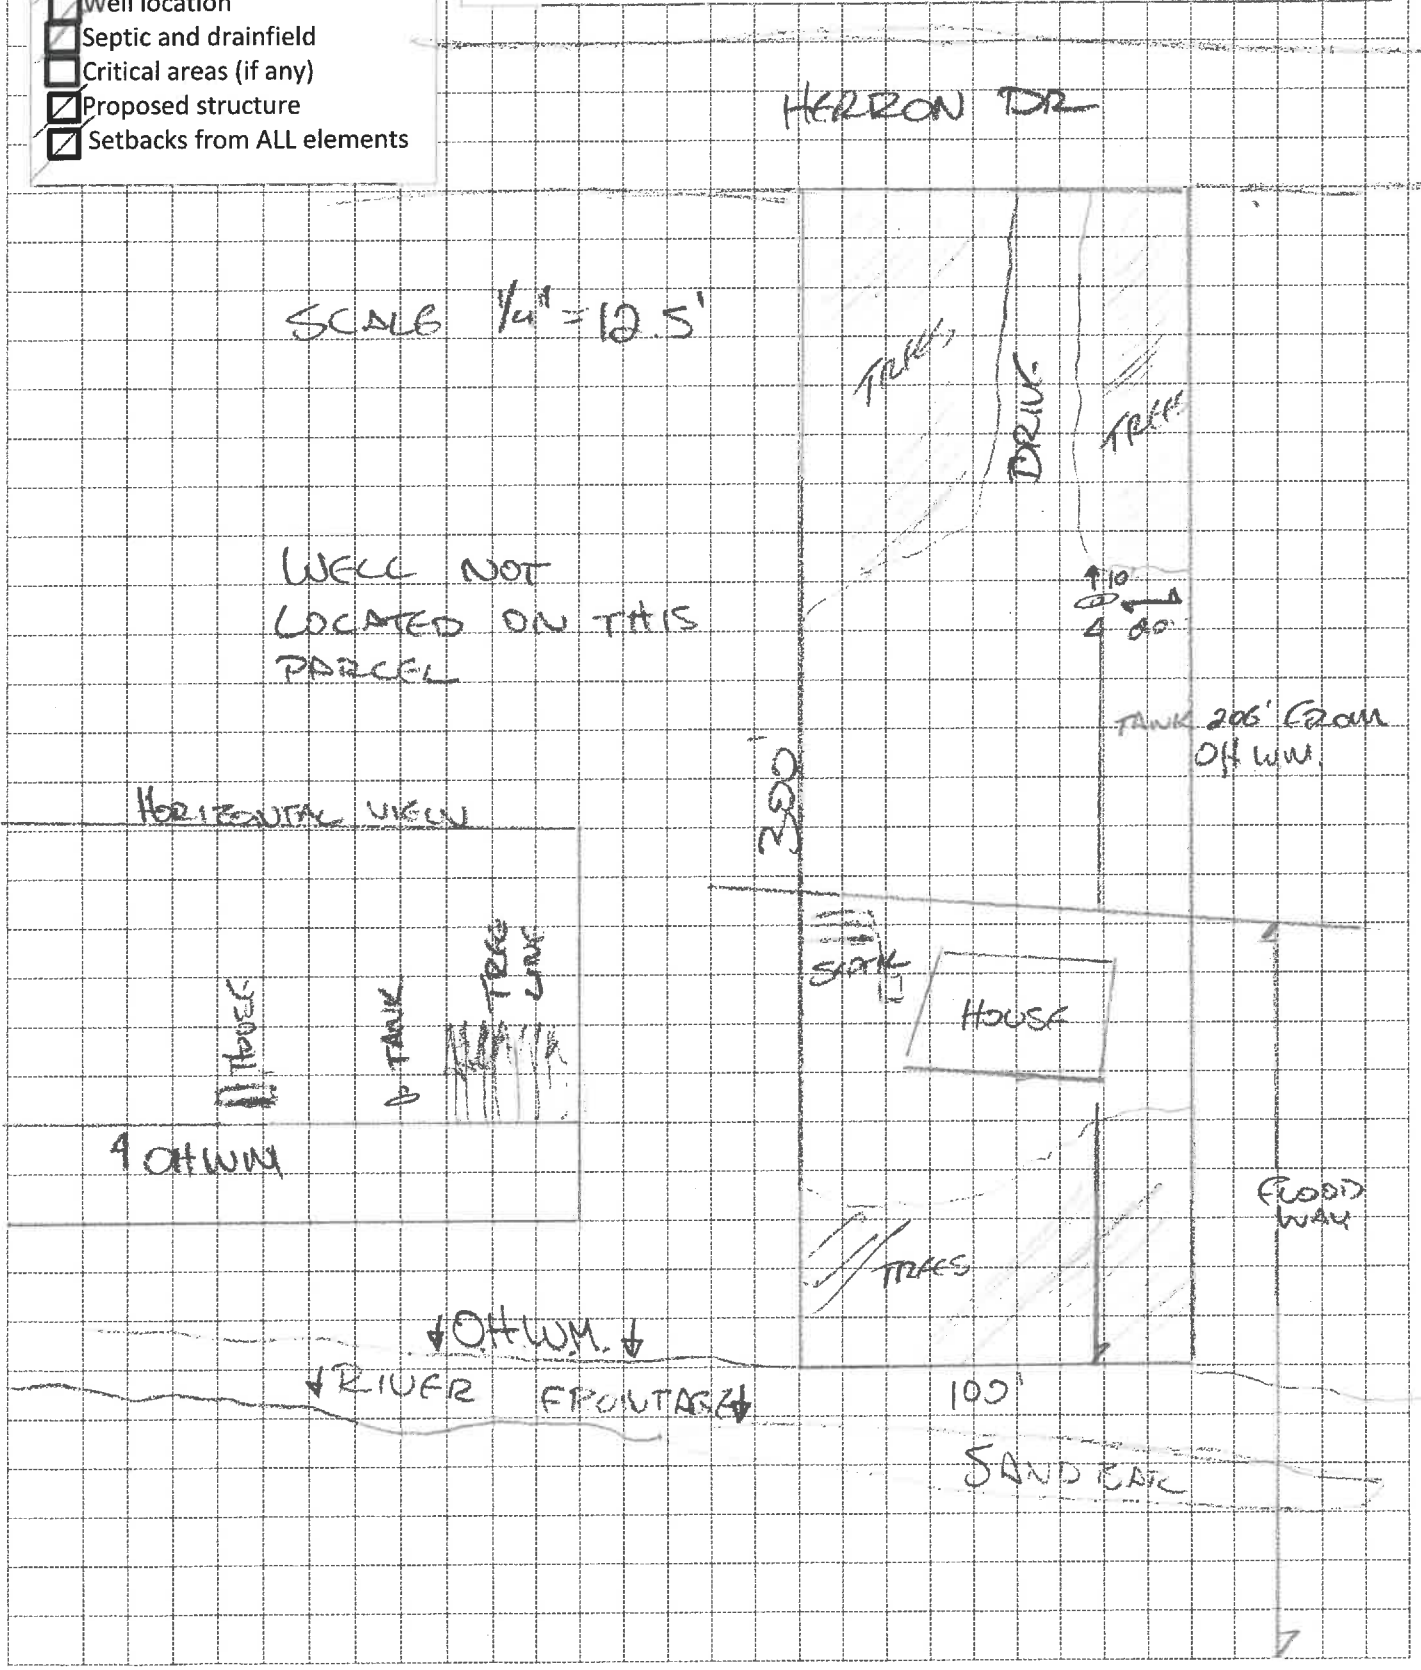 Well location
Septic and drainfield
Critical areas (if any)
Proposed structure
Setbacks from ALL elements
HERRON DR
SCALE 1/4" = 12.5'
TREES
DRIVE
TREES
WELL NOT
LOCATED ON THIS
PARCEL
10'
TANK 206' FROM
OHWM.
300'
HORIZONTAL VIEW
HOUSE
TANK
TREE
LINE
OHWM
SEPTIC
HOUSE
FLOOD
WAY
TREES
OHWM.
RIVER FRONTAGE
100'
SANDBAR